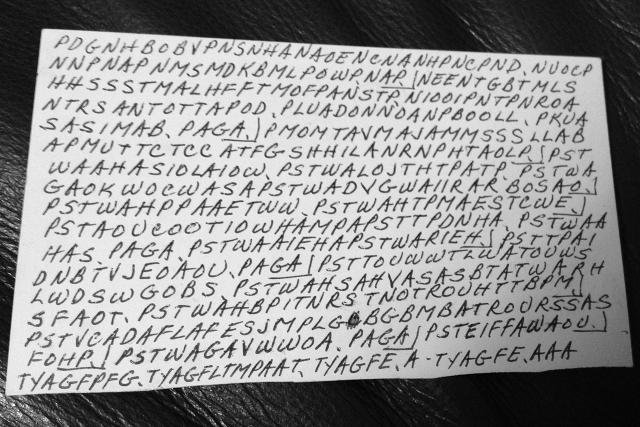 PDGNHBOBVPNSNHANAOENCNANHPNCPND, NUOCP
NNPNAPNMSMDKBMLPOWPNAP,|NEENTGBTMLS
HHSSSTMALHFFTMOFPANSTPNIOOIPNTPNROA
NTRSANTOTTAPOD, PLUADONNOANPBOOLL, PKUA
SASIMAB, PAGA.)PMOMTAVMAJAMMSSSLLAB
APMUTTCTCC ATFGSHHILANRNPHTAOLP.|PST
WAAHASIOLAIOW, PSTWALOJTHTPATP, PSTWA
GAOKWOCWASAPSTWADVGWAIIRAR, BOSAO.)
PSTWAHPPAAETWW, PSTWAHTPMAESTCWE.)
PSTAOUCOOTIOWHAMPAPSTTPDNHA, PSTWAA
HAS, PAGA, PSTWAAIEHAPSTWARIEH.)PSTTPAI
DNBTVJEOAOU, PAGA|PSTTOUWWTLWATOUWS
LWDSWGOBS, PSTWAHSAHVASASBTATWARH
SFAOT, PSTWAHBPITNRSTNOTROUHTTBPM)
PSTVCADAFLAFESJMPLG BGBMBATROURSSAS
FOHP.)PSTWAGAVWWOA, PAGA)PSTEIFFAWAOU.)
TYAGFPFG, TYAGFLTMPAAT, TYAGFE, A-TYAGFE, AAA